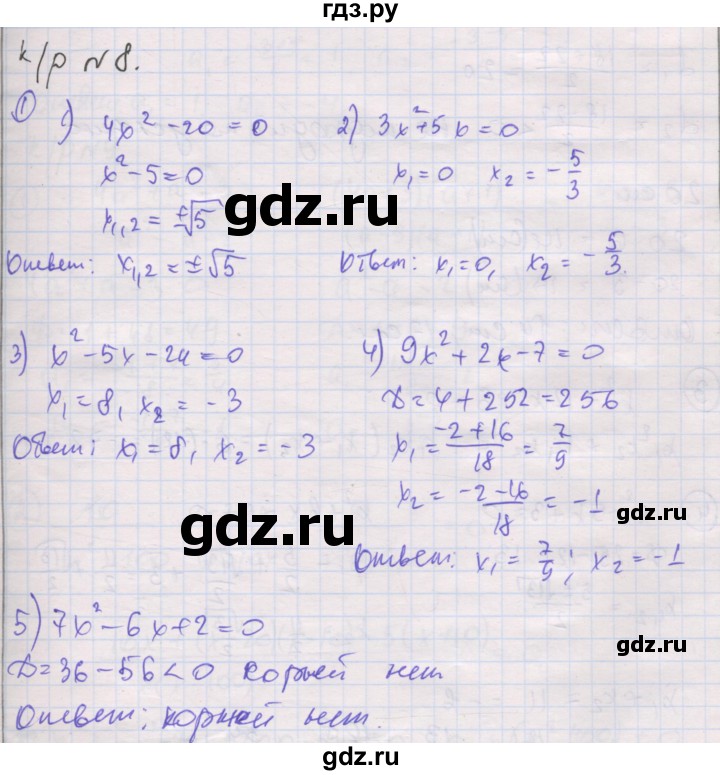 гдз.ру
к/р №8.
① 1) 4x² - 20 = 0
x² - 5 = 0
x₁,₂ = ±√5
Ответ: x₁,₂ = ±√5
2) 3x² + 5x = 0
x₁ = 0 x₂ = -5/3
Ответ: x₁ = 0, x₂ = -5/3.
gdz.ru
3) x² - 5x - 24 = 0
x₁ = 8, x₂ = -3
Ответ: x₁ = 8, x₂ = -3
4) 9x² + 2x - 7 = 0
D = 4 + 252 = 256
x₁ = (-2+16)/18 = 7/9
x₂ = (-2-16)/18 = -1
Ответ: x₁ = 7/9; x₂ = -1
gdz.ru
gdz.ru
5) 7x² - 6x + 2 = 0
D = 36 - 56 < 0 корней нет
Ответ: корней нет.
gdz.ru
gdz.ru